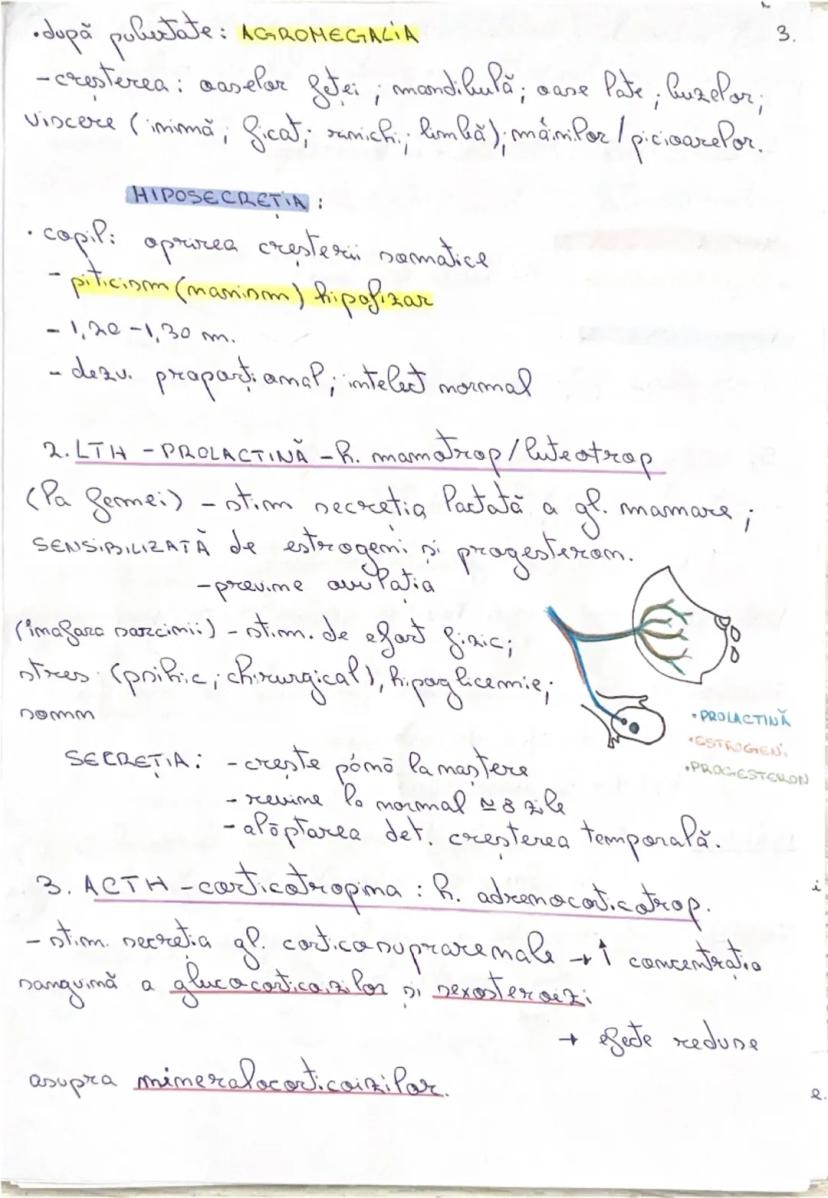 3.
• după pubertate: ACROMEGALIA
- creșterea: oaselor feței; mandibulă; oase late; buzelor;
viscere (inimă; ficat; rinichi; limbă); mâinilor/picioarelor.
HIPOSECREȚIA:
• copil: oprirea creșterii somatice
- piticism (nanism) hipofizar
- 1,20 - 1,30 m.
- dezv. proporțional; intelect normal
2. LTH - PROLACTINĂ - h. mamotrop/luteotrop
(la femei) - stim secreția lactată a gl. mamare;
SENSIBILIZATĂ de estrogeni și progesteron.
- previne ovulația
(în afara sarcinii) - stim. de efort fizic;
stres (psihic; chirurgical), hipoglicemie;
somn
• PROLACTINĂ
• ESTROGENI
• PROGESTERON
SECREȚIA: - crește până la naștere
- revine la normal ≃ 8 zile
- alăptarea det. creșterea temporală.
3. ACTH - corticotropina: h. adrenocorticotrop.
- stim. secreția gl. corticosuprarenale → ↑ concentrația
sanguină a glucocorticoizilor și sexosteroizi
→ efecte reduse
asupra mineralocorticoizilor.